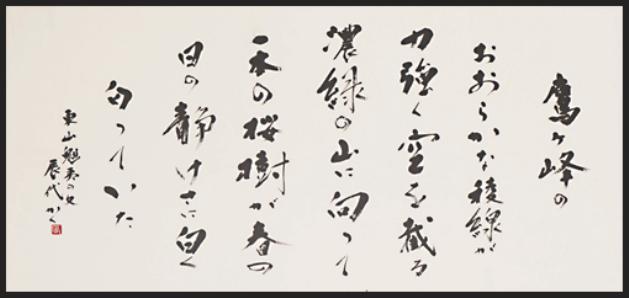 鷹ヶ峰の
おおらかな稜線が
力強く空を截る
濃緑の山に向って
一本の桜樹が春の
日の静けさに白く
匂っていた
東山魁夷の文
辰代かく